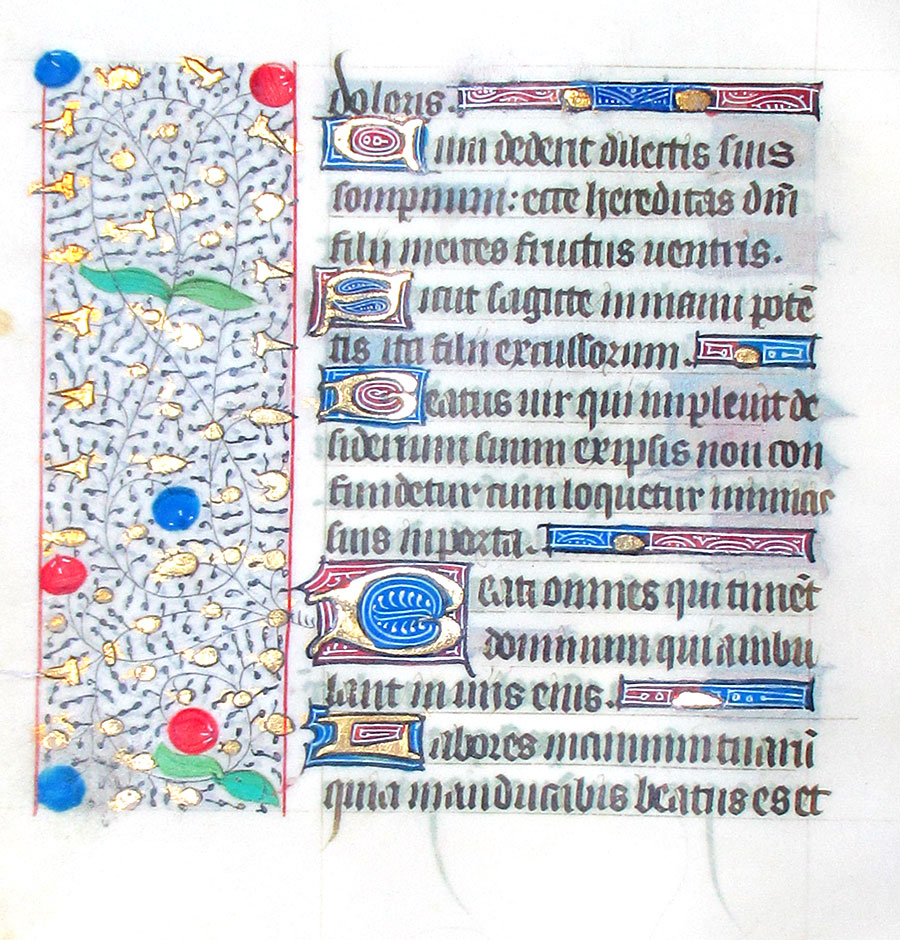 doloris.
Cum dederit dilectis suis
sompnum: ecce hereditas dñi
filij merces fructus uentris.
Sicut sagitte in manu potē
tis ita filii excussorum.
Beatus uir qui impleuit de
siderium suum ex ipsis non con
fundetur cum loquetur inimicis
suis in porta.
Beati omnes qui timēt
dominum qui ambu
lant in uiis eius.
Labores manuum tuarū
quia manducabis beatus es et